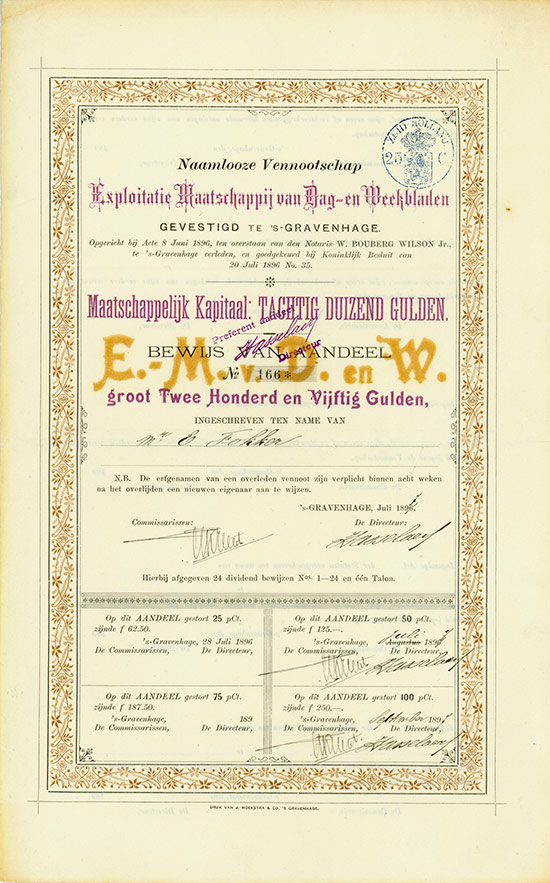 ZUID-HOLLAND
25 C
Naamlooze Vennootschap
Exploitatie Maatschappij van Dag- en Weekbladen
GEVESTIGD TE 'S-GRAVENHAGE.
Opgericht bij Acte 8 Juni 1896, ten overstaan van den Notaris W. BOUBERG WILSON Jr.,
te 's-Gravenhage verleden, en goedgekeurd bij Koninklijk Besluit van
20 Juli 1896 No. 35.
Maatschappelijk Kapitaal: TACHTIG DUIZEND GULDEN.
Preferent aandeel
Hasselaer
Directeur
BEWIJS VAN AANDEEL
E.-M. v. D. en W.
No 166*
groot Twee Honderd en Vijftig Gulden,
INGESCHREVEN TEN NAME VAN
Mr C. Fokker
N.B. De erfgenamen van een overleden vennoot zijn verplicht binnen acht weken
na het overlijden een nieuwen eigenaar aan te wijzen.
's-GRAVENHAGE, Juli 1897
Commissarissen: De Directeur:
Hasselaer
Hierbij afgegeven 24 dividend bewijzen Nos. 1—24 en één Talon.
Op dit AANDEEL gestort 25 pCt.
zijnde f 62.50.
's-Gravenhage, 28 Juli 1896
De Commissarissen, De Directeur,
Op dit AANDEEL gestort 50 pCt.
zijnde f 125.—.
's-Gravenhage, Augustus Juli 1897
De Commissarissen, De Directeur,
Hasselaer
Op dit AANDEEL gestort 75 pCt.
zijnde f 187.50.
's-Gravenhage, 189
De Commissarissen, De Directeur,
Op dit AANDEEL gestort 100 pCt.
zijnde f 250.—.
's-Gravenhage, September 1897
De Commissarissen, De Directeur,
Hasselaer
DRUK VAN J. HOEKSTRA & CO. 'S GRAVENHAGE.